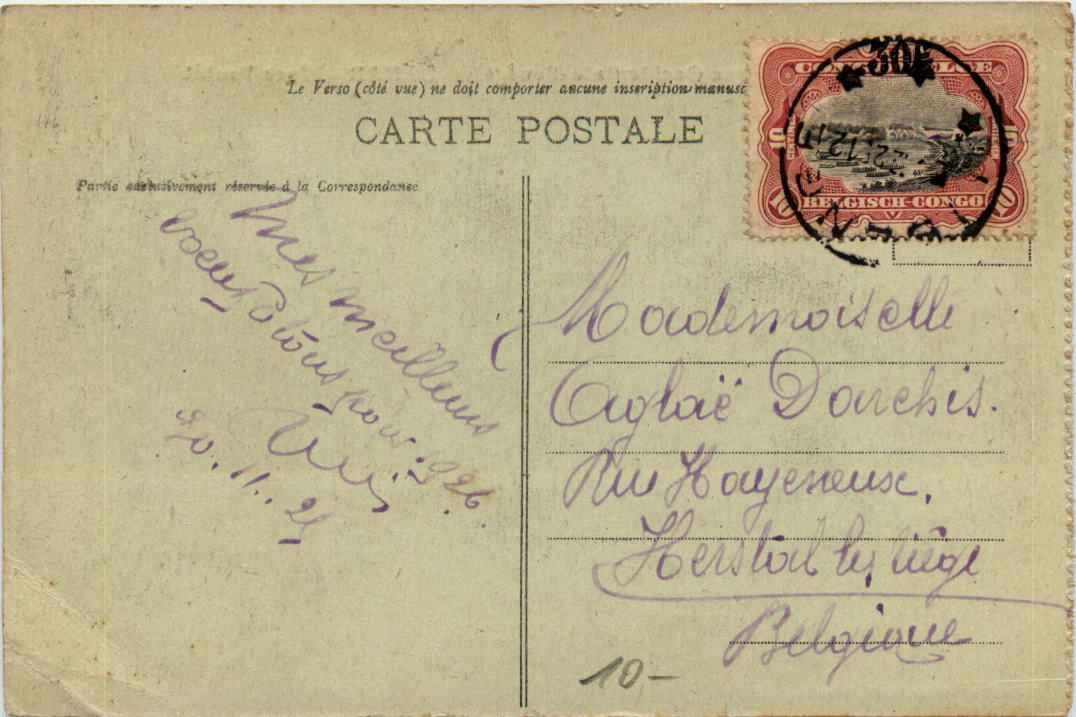 Le Verso (côté vue) ne doit comporter aucune inscription manusc
CARTE POSTALE
Partie exclusivement réservée à la Correspondance
CONGO BELGE
10 10
CENTIMES
10 BELGISCH-CONGO 10
Mes meilleurs
voeux à tous pour 1926.
20.11.25
Mademoiselle
Aglaë Darchis.
Rue Hayeneux,
Herstal lez Liège
Belgique
10-